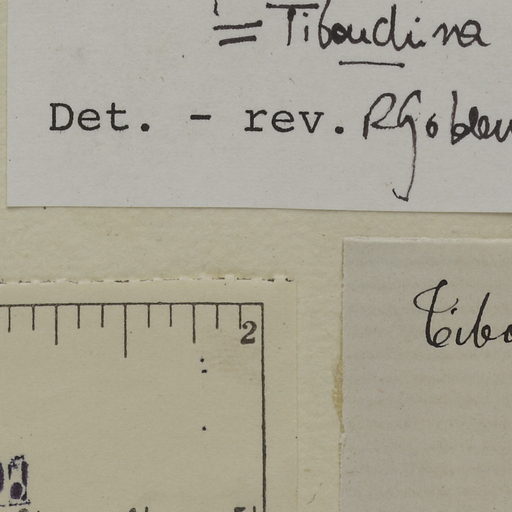 = Tibouchina
Det. - rev. RGoblen
2
Tibo